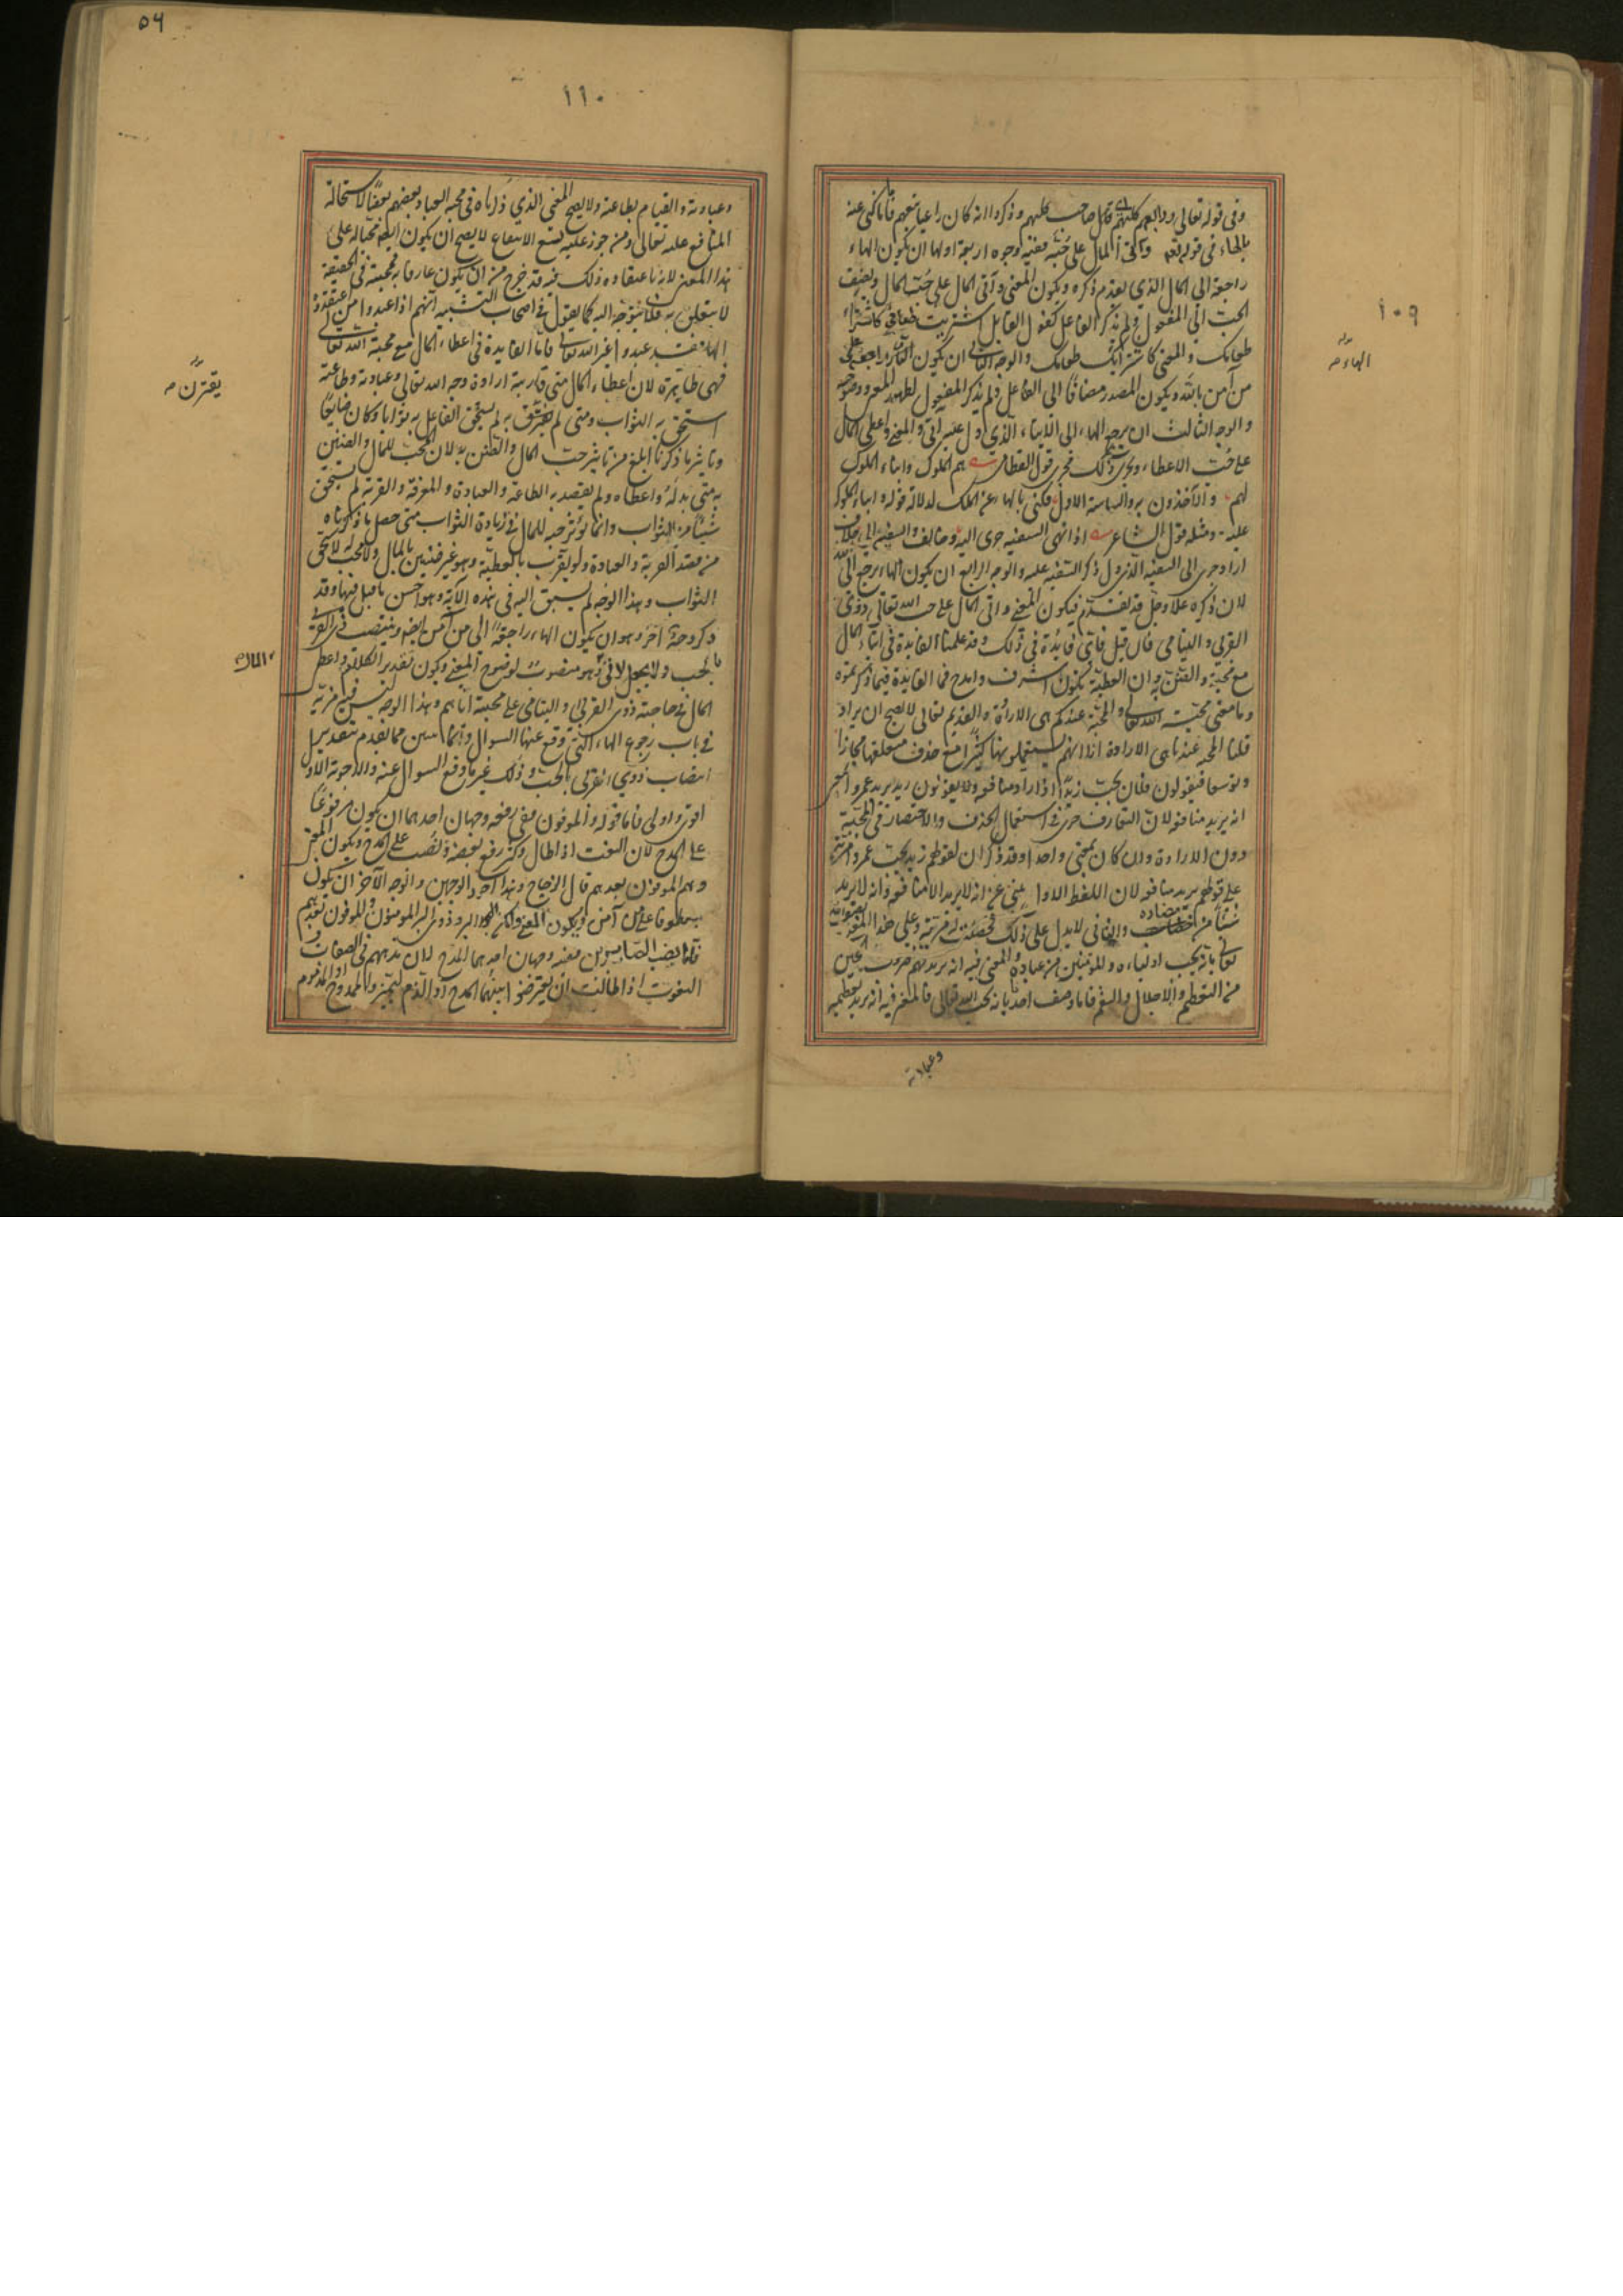 ١٠٩
وفي قوله تعالى ورابعهم كلبهم قال صاحب كلبهم وذكروا انه كان راعيا تبعهم فاما كنى عنه
بالهاء في قوله تعالى وآتى المال على حبه ففيه وجوه اربعة اولها ان يكون الهاء
راجعة الى المال الذي تقدم ذكره ويكون المعنى وآتى المال على حب المال واضيف
الحب الى المفعول ولم يذكر الفاعل كقول القائل اشتريت طعامي كاشتراء
طعامك والمعنى كاشترائك طعامك والوجه الثاني ان يكون الهاء راجعة الى
من آمن بالله ويكون المصدر مضافا الى الفاعل ولم يذكر المفعول لظهور المعنى ووضوحه
والوجه الثالث ان يرجع الهاء الى الايتاء الذي دل عليه آتى والمعنى واعطى المال
على حب الاعطاء ويجري ذلك مجرى قول القطامي هم الملوك وابناء الملوك
لهم والآخذون به والساسة الاول فكنى بالهاء عن الملك لدلالة قوله وابناء الملوك
عليه ومثله قول الشاعر اذا نهى السفيه جرى اليه وخالف والسفيه الى خلاف
اراد جرى الى السفه الذي دل ذكر السفيه عليه والوجه الرابع ان يكون الهاء يرجع الى الله
لان ذكره علا وجل قد تقدم فيكون المعنى وآتى المال على حب الله تعالى ذوي
القربى واليتامى فان قيل فاي فائدة في ذلك وقد علمنا الفايدة في ايتاء المال
مع محبته والضن به وان العطية تكون اشرف وامدح فما الفايدة فيما ذكرتموه
وما معنى محبة الله تعالى والمحبة عندكم هي الارادة والقديم تعالى لا يصح ان يراد
قلنا المحبة عندنا هي الارادة الا انهم يستعملونها كثيرا مع حذف متعلقها مجازا
وتوسعا فيقولون فلان يحب زيدا اذا اراد منافعه ولا يقولون زيد يريد عمروا بمعنى
انه يريد منافعه لان التعارف جرى في استعمال الحذف والاختصار في المحبة
دون الارادة وان كان بمعنى واحد وقد ذكر ان لقولهم زيد يحب عمروا مزية
على قولهم يريد منافعه لان اللفظ الاول ينبئ عن انه لا يريد الا منافعه وانه لا يريد
شيئا من مضاره والثاني لا يدل على ذلك فحصلت له مزية وعلى هذا المعنى نصف الله
تعالى بانه يحب اولياءه والمؤمنين من عباده والمعنى فيه انه يريد لهم ضروب الخير
من التعظيم والاجلال والنعم فاما وصف احدنا بانه يحب الله تعالى فالمعنى فيه انه يريد تعظيمه
وعبادته
الهاء صح
٥٤
١١٠
وعبادته والقيام بطاعته ولا يصح المعنى الذي ذكرناه في محبة العباد بعضهم بعضا لاستحالة
المنافع عليه تعالى ومن جوز عليه تعالى الانتفاع لا يصح ان يكون ايضا محبا له على
هذا المعنى لانه باعتقاده ذلك فيه قد خرج من ان يكون عارفا به فمحبته في الحقيقة
لا يتعلق به ولا يتوجه اليه كما يقول في اصحاب التشبيه انهم اذا عبدوا من اعتقدوه
الها فقد عبدوا غير الله تعالى فاما الفايدة في اعطاء المال مع محبة الله تعالى
فهي ظاهرة لان اعطاء المال متى قارنته ارادة وجه الله تعالى وعبادته وطاعته
استحق به الثواب ومتى لم يقترن به لم يستحق الفاعل به ثوابا وكان ضايعا
وتاثير ما ذكرناه ابلغ من تاثير حب المال والضن به لان المحب للمال والضنين
به متى بذله واعطاه ولم يقصد به الطاعة والعبادة والقربة لم يستحق
شيئا من الثواب وانما يؤثر حبه للمال في زيادة الثواب متى حصل ما ذكرناه
من قصد القربة والعبادة ولو تقرب بالعطية وهو غير ضنين بالمال ولا محب له لاستحق
الثواب وهذا الوجه لم يسبق اليه في هذه الآية وهو احسن ما قيل فيها وقد
ذكر وجه آخر وهو ان يكون الهاء راجعة الى من آمن ايضا وينتصب ذوي القربى
بالحب ولا يجعل لآتى وهو منصوب لوضوح المعنى ويكون تقدير الكلام واعطى
المال في حاجته ذوي القربى واليتامى على محبته اياهم وهذا الوجه ليس فيه مزية
في باب رجوع الهاء التي وقع عنها السؤال وانما يتبين مما تقدم بتقدير
انتصاب ذوي القربى بالحب وذلك غير ما وقع السؤال عنه والاجوبة الاول
اقوى واولى فاما قوله والموفون ففي رفعه وجهان احدهما ان يكون مرفوعا
على المدح لان النعت اذا طال وكثر رفع بعضه ونصب على المدح ويكون المعنى
وهم الموفون بعهدهم قال الزجاج وهذا اجود الوجهين والوجه الآخر ان يكون
معطوفا على من آمن ويكون المعنى ولكن البر وذوي البر المؤمنون والموفون بعهدهم
فاما نصب الصابرين ففيه وجهان احدهما المدح لان مذهبهم في الصفات و
النعوت اذا طالت ان يعترضوا بينها بالمدح او الذم ليميزوا الممدوح او المذموم
يقترن صح
المال